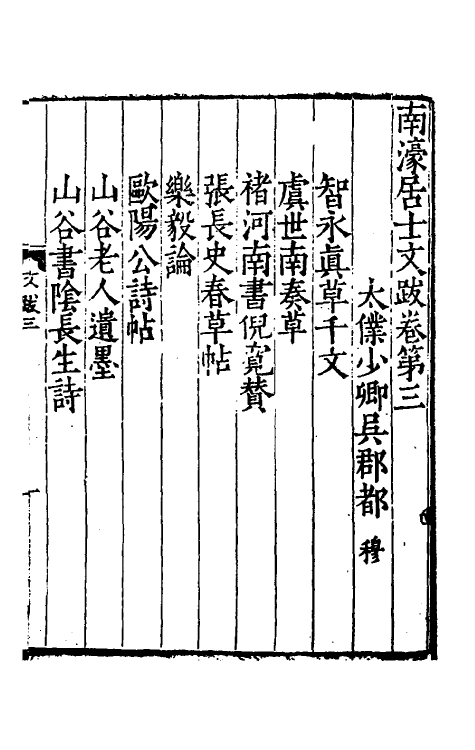 南濠居士文跋卷第三
太僕少卿吳郡都穆
智永眞草千文
虞世南奏草
褚河南書倪寬贊
張長史春草帖
樂毅論
歐陽公詩帖
山谷老人遺墨
山谷書陰長生詩
文跋三
一